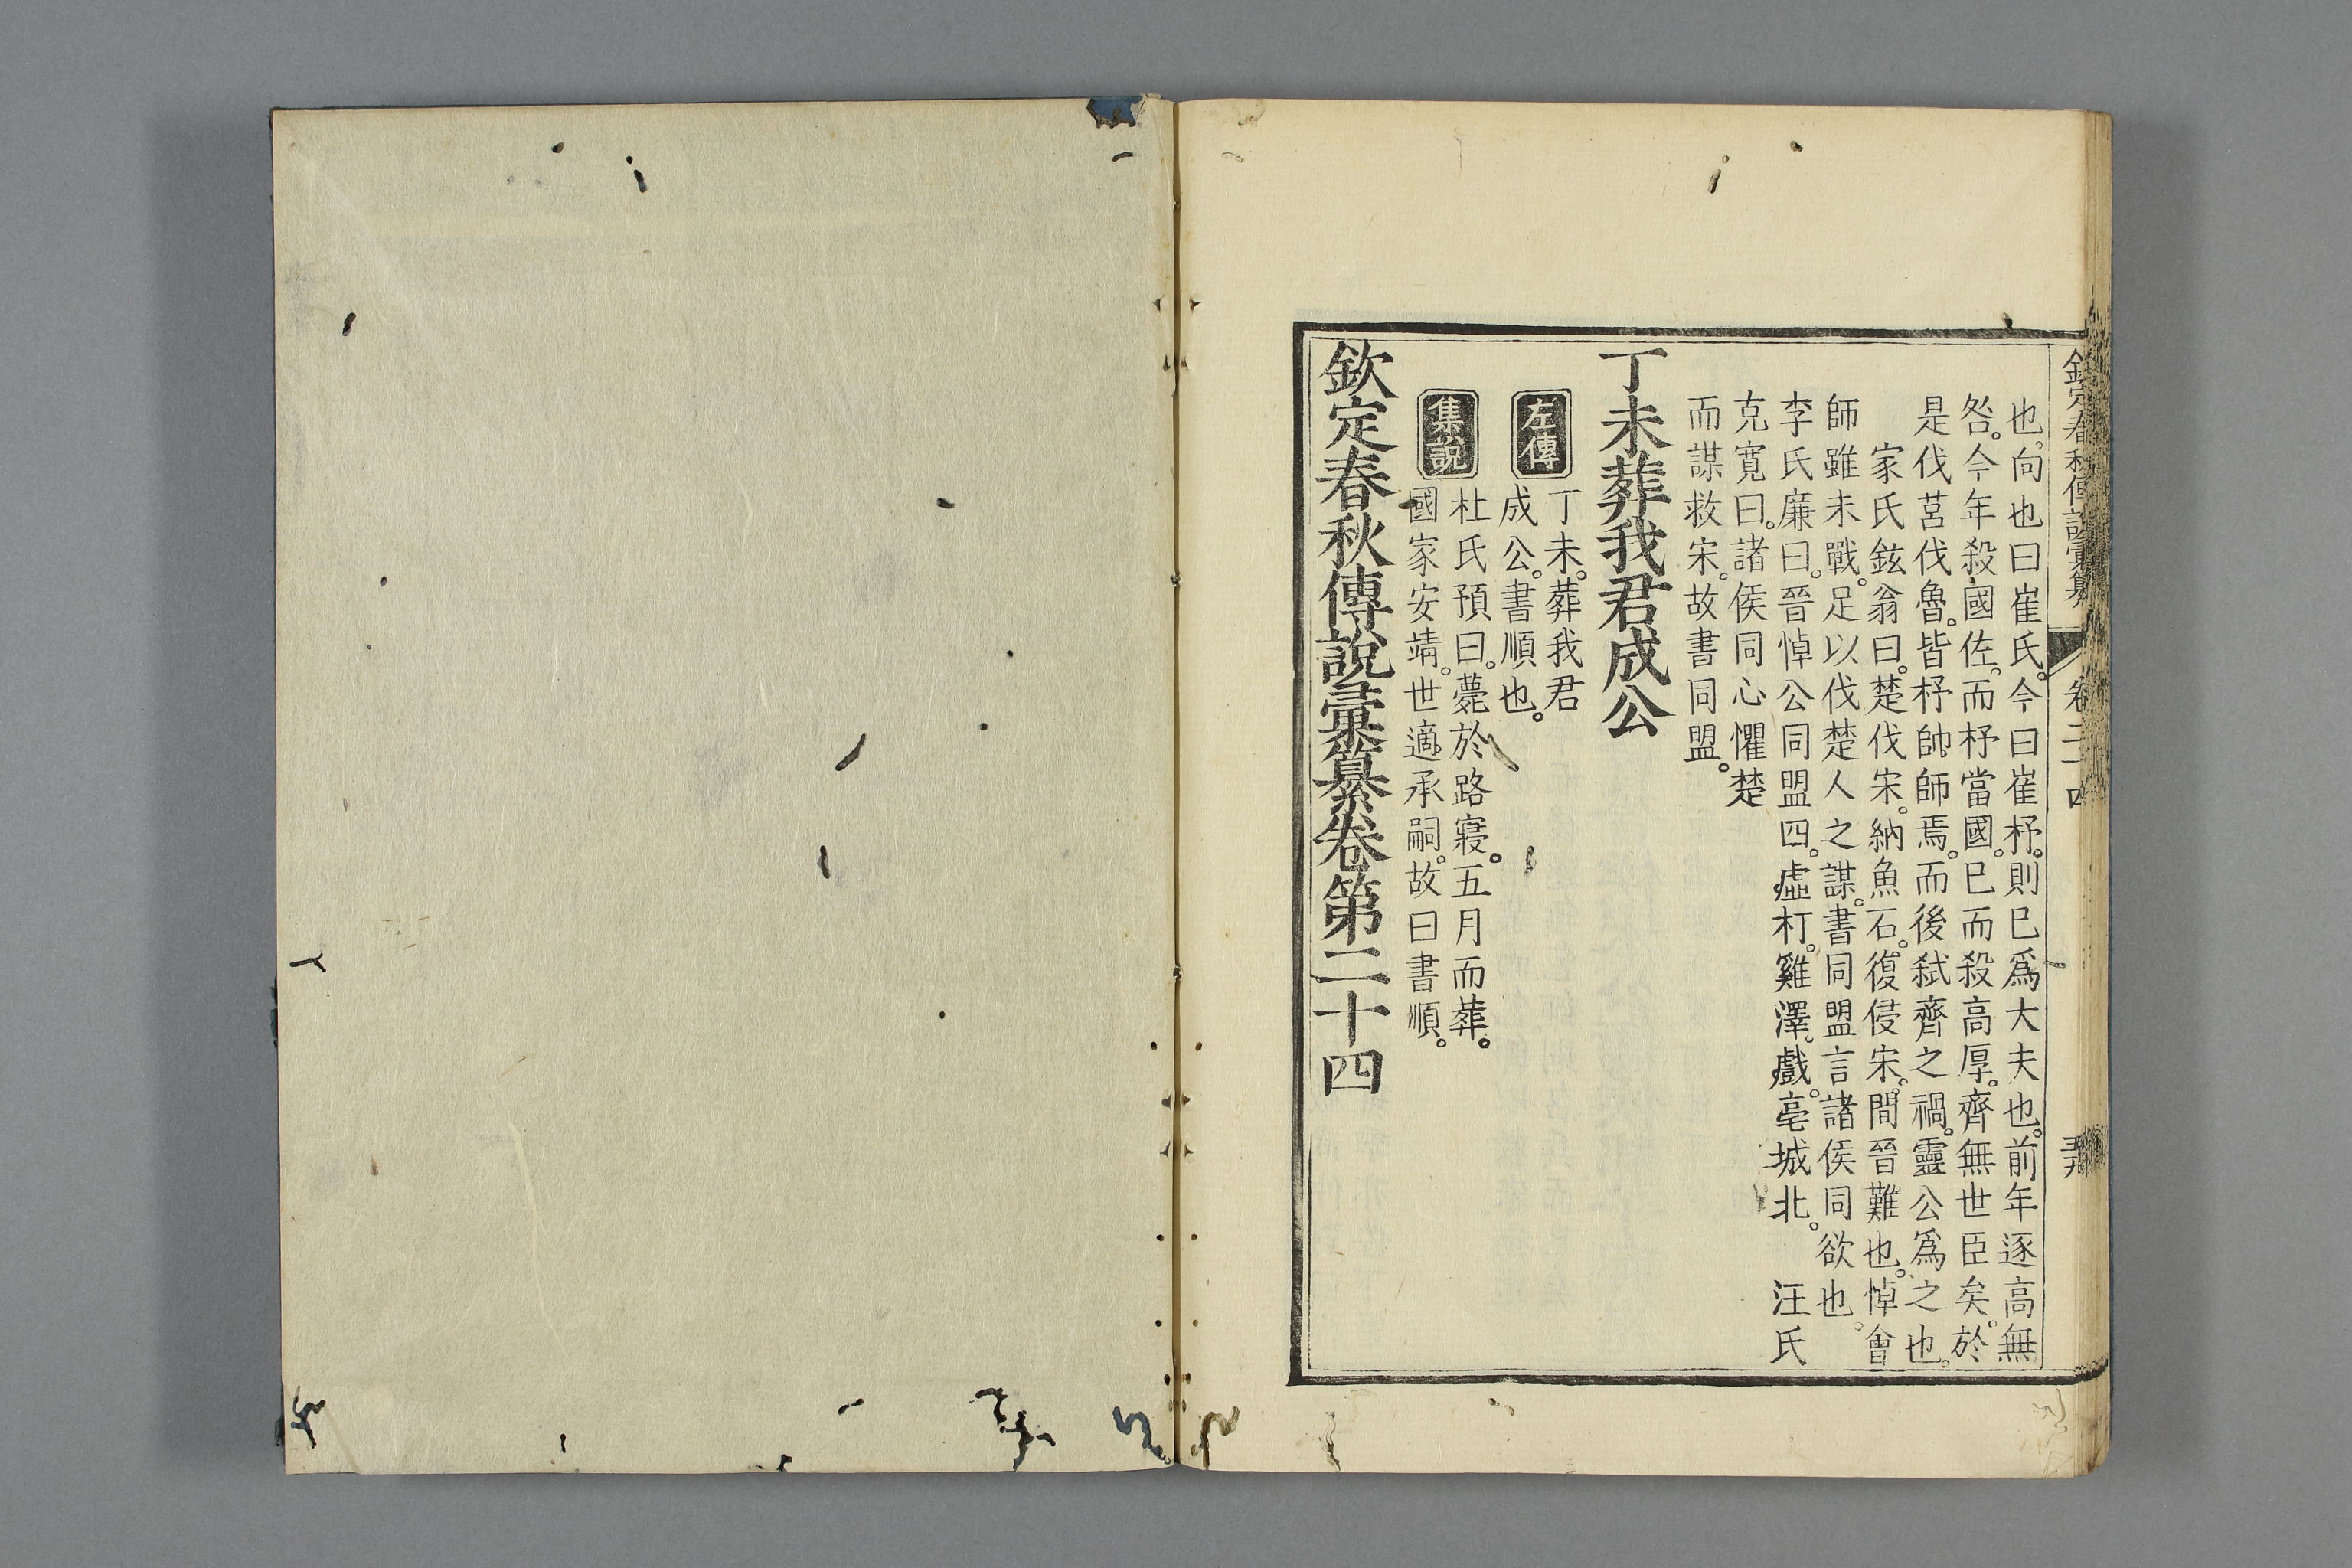 欽定春秋傳說彙纂 卷二十四
也向也曰崔氏今曰崔杼則已爲大夫也前年逐高無
咎今年殺國佐而杼當國已而殺高厚齊無世臣矣於
是伐莒伐魯皆杼帥師焉而後弑齊之禍靈公爲之也
家氏鉉翁曰楚伐宋納魚石復侵宋間晉難也悼會
師雖未戰足以伐楚人之謀書同盟言諸侯同欲也
李氏廉曰晉悼公同盟四虛朾雞澤戲亳城北 汪氏
克寬曰諸侯同心懼楚
而謀救宋故書同盟
丁未葬我君成公
左傳
丁未葬我君
成公書順也
集說
杜氏預曰薨於路寢五月而葬
國家安靖世適承嗣故曰書順
欽定春秋傳說彙纂卷第二十四